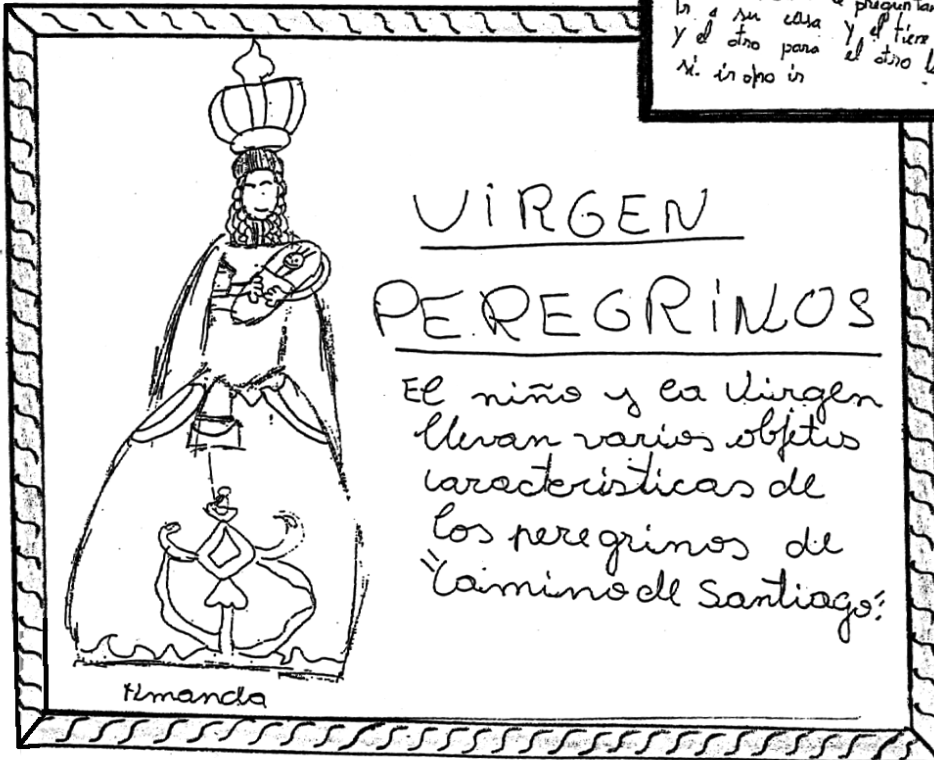 preguntar
a su casa y el tiene
y el otro para el otro
si. ir o no ir
VIRGEN
PEREGRINOS
El niño y la Virgen
llevan varios objetos
caracteristicas de
los peregrinos de
"Camino de Santiago".
Amanda